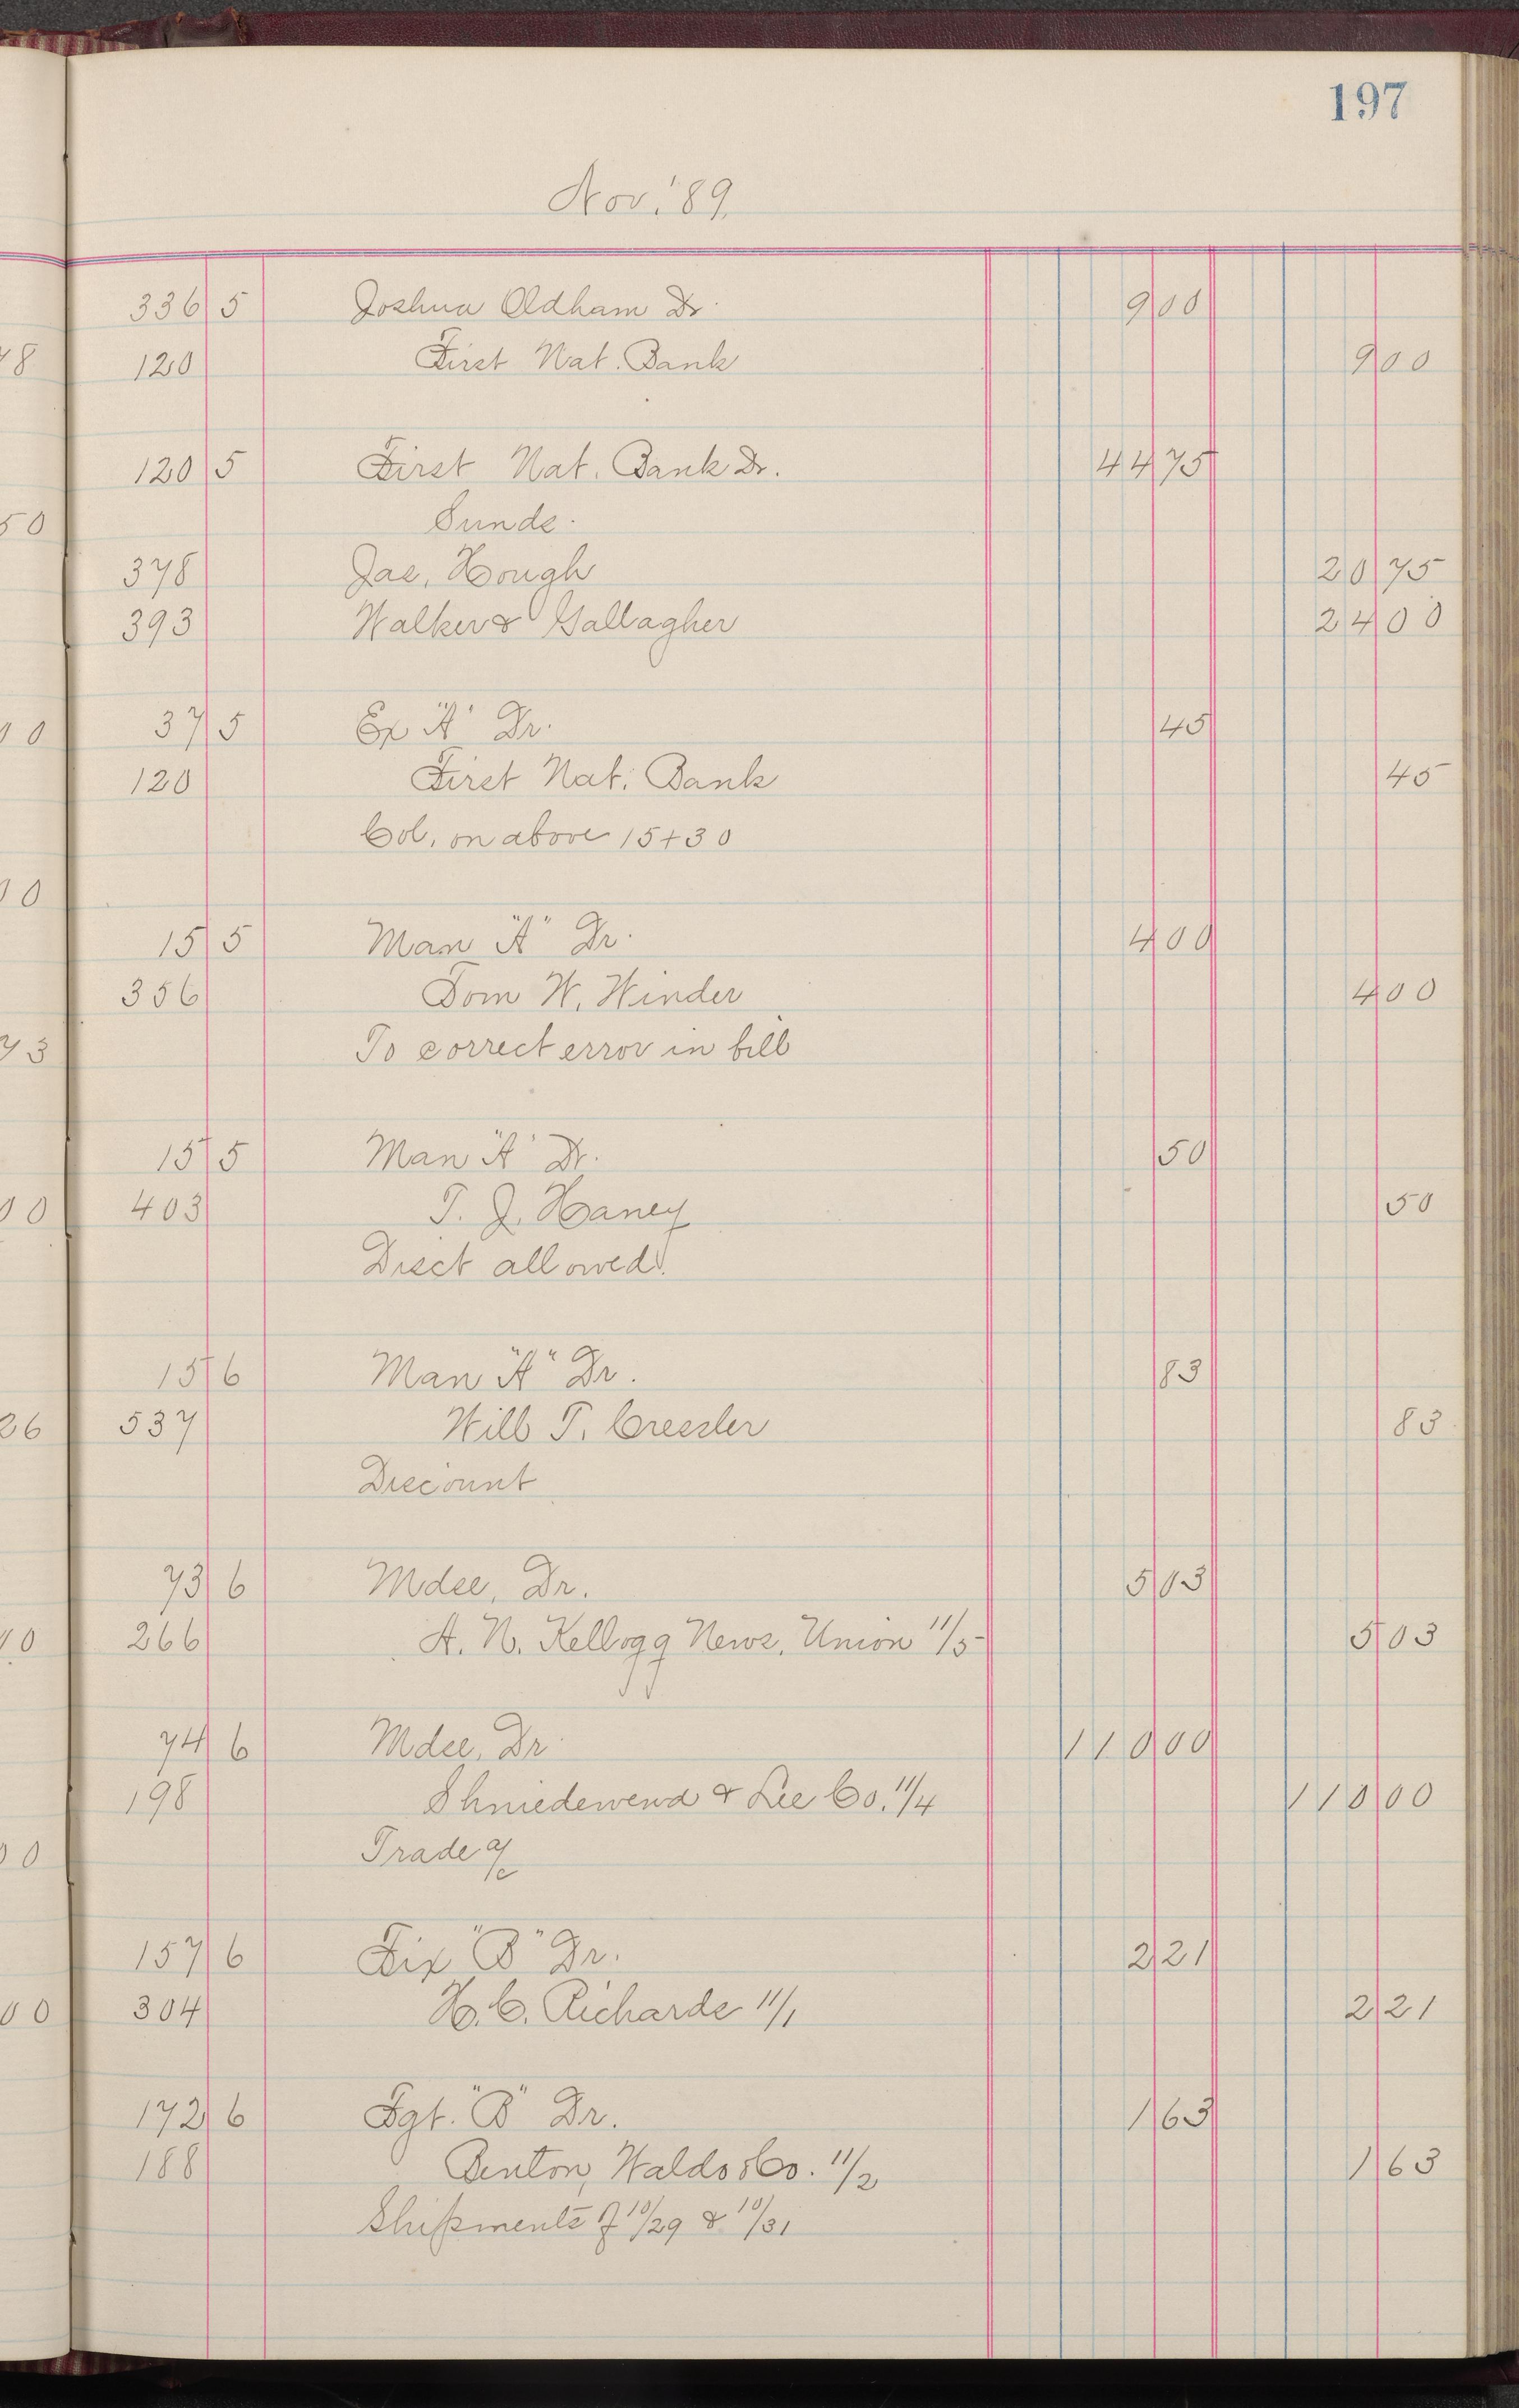 197
Nov. '89.
336 5 Joshua Oldham Dr. 9 00
48 120 First Nat. Bank 9 00
120 5 First Nat. Bank Dr. 44 75
50 Sunds.
378 Jas. Hough 20 75
393 Walker & Gallagher 24 00
00 37 5 Ex "A" Dr. 45
120 First Nat. Bank 45
Col. on above 15+30
00
15 5 Man "A" Dr. 4 00
356 Tom W. Winder 4 00
73 To correct error in bill
15 5 Man "A" Dr. 50
00 403 T. J. Haney 50
Disct allowed.
15 6 Man "A" Dr. 83
26 537 Will T. Cressler 83
Discount
73 6 Mdse. Dr. 5 03
10 266 A. N. Kellogg News. Union 11/5 5 03
74 6 Mdse. Dr. 110 00
198 Shniedewend & Lee Co. 11/4 110 00
00 Trade a/c
157 6 Fix "B" Dr. 2 21
00 304 H. C. Richards 11/1 2 21
172 6 Fgt. "B" Dr. 1 63
188 Benton, Waldo & Co. 11/2 1 63
Shipments of 10/29 & 10/31